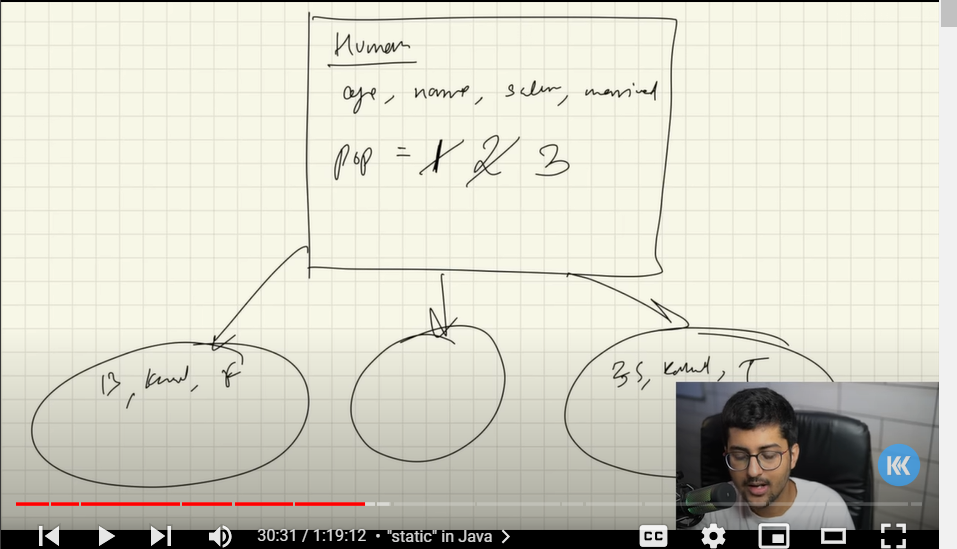 Human
age, name, salary, married
pop = 1 2 3
13, Kunal, F
35, Rahul, T
KK
30:31 / 1:19:12 • "static" in Java
CC